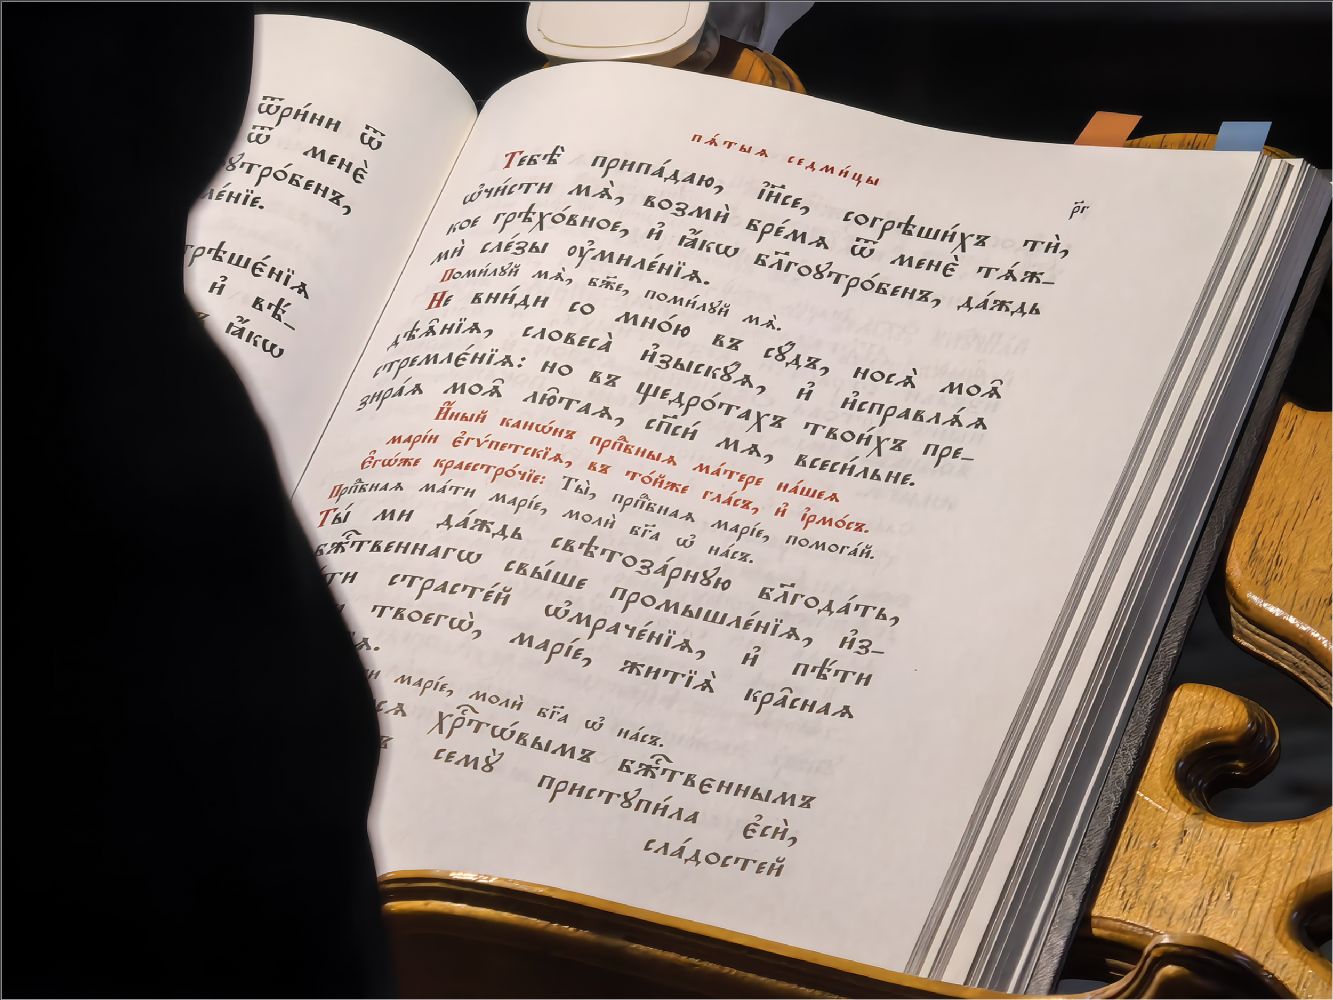 ѿри́ни ѿ
ѿ менє̀
ле́нїе.
и҆ вѣ́_
ꙗ҆́кѡ
пѧ́тыѧ седми́цы
р҃г
Тебѣ̀ припа́даю, і҆и҃се, согрѣши́хъ тѝ,
ѡ҆чи́сти мѧ̀, возмѝ бре́мѧ ѿ менє̀ тѧ́ж_
кое грѣхо́вное, и҆ ꙗ҆́кѡ бл҃гоꙋтро́бенъ, да́ждь
мѝ сле́зы ᲂу҆миле́нїѧ.
Поми́лꙋй мѧ̀, бж҃е, поми́лꙋй мѧ̀.
Не вни́ди со мно́ю въ сꙋ́дъ, носѧ̀ моѧ̑
дѣѧ̑нїѧ, словеса̀ и҆зыскꙋ́ѧ, и҆ и҆справлѧ́ѧ
стремлє́нїѧ: но въ щедро́тахъ твои́хъ пре_
зира́ѧ моѧ̑ лю̑таѧ, сп҃си́ мѧ, всеси́льне.
И҆́ный канѡ́нъ прпⷣбныѧ ма́тере на́шеѧ
марі́и є҆гѵ́петскїѧ, въ то́йже гла́съ, и҆ і҆рмо́съ.
Є҆гѡ́же краестро́чїе: Ты̀, прпⷣбнаѧ марі́е, помога́й.
Прпⷣбнаѧ ма́ти марі́е, молѝ бг҃а ѡ҆ на́съ.
Ты́ ми да́ждь свѣтоза́рнꙋю бл҃года́ть,
бжⷭ҇твеннагѡ свы́ше промышле́нїѧ, и҆з_
ти страсте́й ѡ҆мраче́нїѧ, и҆ пѣ́ти
твоегѡ̀, марі́е, житїѧ̀ кра̑снаѧ
марі́е, молѝ бг҃а ѡ҆ на́съ.
хрⷭ҇тѡ́вымъ бжⷭ҇твєннымъ
семꙋ̀ пристꙋпи́ла є҆сѝ,
сла́достей